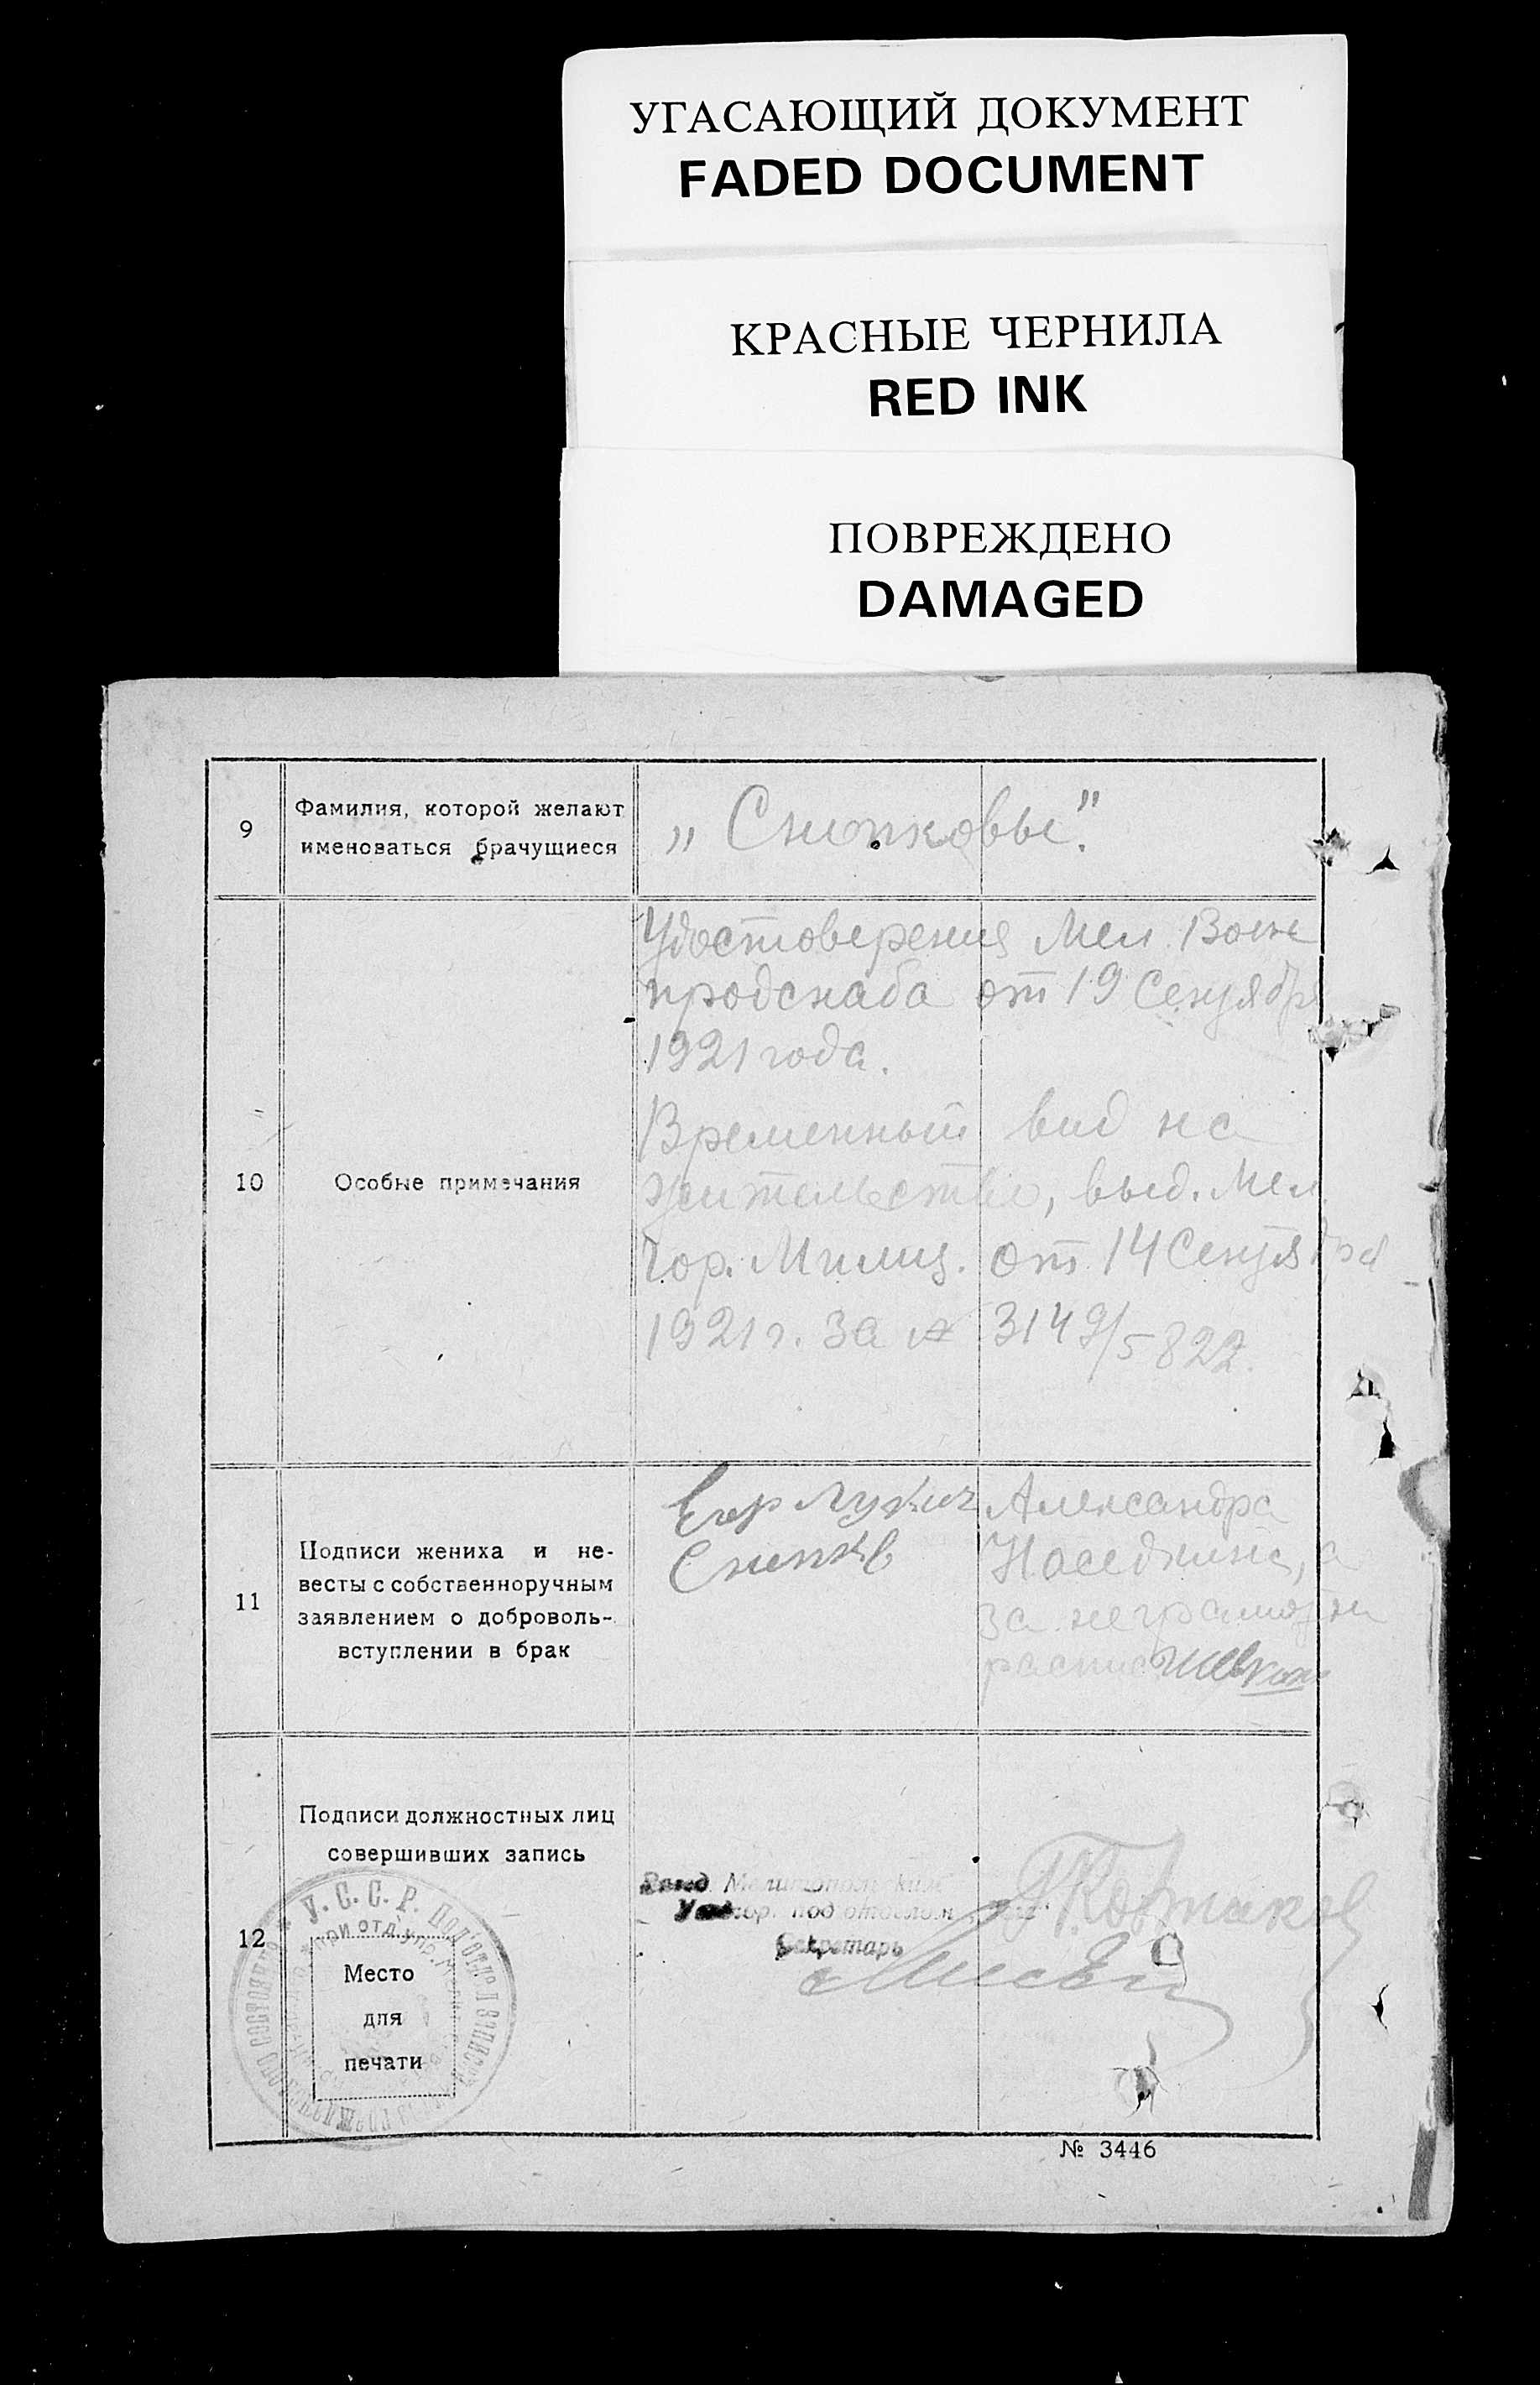 УГАСАЮЩИЙ ДОКУМЕНТ
FADED DOCUMENT
КРАСНЫЕ ЧЕРНИЛА
RED INK
ПОВРЕЖДЕНО
DAMAGED
9
Фамилия, которой желают
именоваться брачущиеся
„Снопковы".
10
Особые примечания
Удостоверения Мел. Воен
продснаба от 19 Сентября
1921 года.
Временный вид на
жительство, выд. Мел.
Гор. Милиц. от 14 Сентября
1921 г. за № 3149/5822.
11
Подписи жениха и не-
весты с собственноручным
заявлением о доброволь-
вступлении в брак
Егор Лукич
Александра
Наседкина, а
за неграмотн
12
Подписи должностных лиц
совершивших запись
Завед. Мелитопольским
под'отделом
Секретарь
У.С.С.Р. Под'отдел записи
при отд. упр.
Место
для
печати
№ 3446